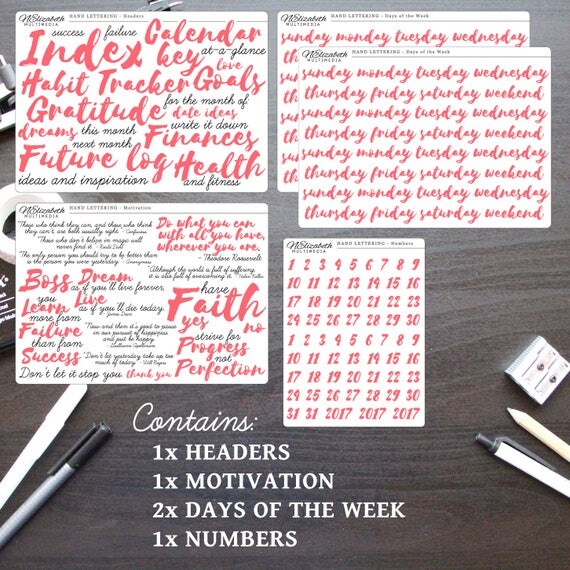 NElizabeth
MULTIMEDIA
HAND LETTERING - Headers
success failure Calendar
Index key at-a-glance
love
Habit Tracker Goals
Gratitude for the month of
date ideas
dreams this month Finances write it down
next month
Future log Health
ideas and inspiration and fitness
NElizabeth
MULTIMEDIA
HAND LETTERING - Days of the Week
sunday monday tuesday wednesday
NElizabeth
MULTIMEDIA
HAND LETTERING - Days of the Week
sunday monday tuesday wednesday
thursday friday saturday weekend
sunday monday tuesday wednesday
thursday friday saturday weekend
sunday monday tuesday wednesday
thursday friday saturday weekend
sunday monday tuesday wednesday
thursday friday saturday weekend
NElizabeth
MULTIMEDIA
HAND LETTERING - Motivation
Those who think they can, and those who think
they can't are both usually right. - Confucius
Those who don't believe in magic will
never find it - Roald Dahl
The only person you should try to be better than
is the person you were yesterday. - Anonymous
Do what you can,
with all you have,
wherever you are.
- Theodore Roosevelt
Although the world is full of suffering,
it is also full of overcoming it. - Helen Keller
Boss Dream
as if you'll live forever.
Live
as if you'll die today.
James Dean
you
Learn
more from
Failure
than from
Success
Now and then it's good to pause
in our pursuit of happiness
and just be happy.
- Guillaume Apollinaire
Don't let yesterday take up too
much of today. - Will Rogers
Don't let it stop you. thank you
have
Faith
yes no
strive for
Progress
not
Perfection
NElizabeth
MULTIMEDIA
HAND LETTERING - Numbers
1 2 3 4 5 6 7 8 9
10 11 12 13 14 15 16
17 18 19 20 21 22 23
24 25 26 27 28 29 30
1 2 3 4 5 6 7 8 9
10 11 12 13 14 15 16
17 18 19 20 21 22 23
24 25 26 27 28 29 30
31 31 2017 2017 2017
Contains:
1x HEADERS
1x MOTIVATION
2x DAYS OF THE WEEK
1x NUMBERS